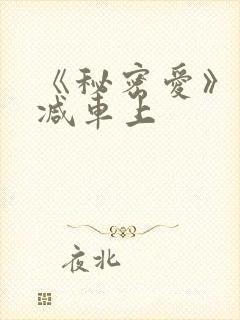 《秘密爱》
减車上
夜北